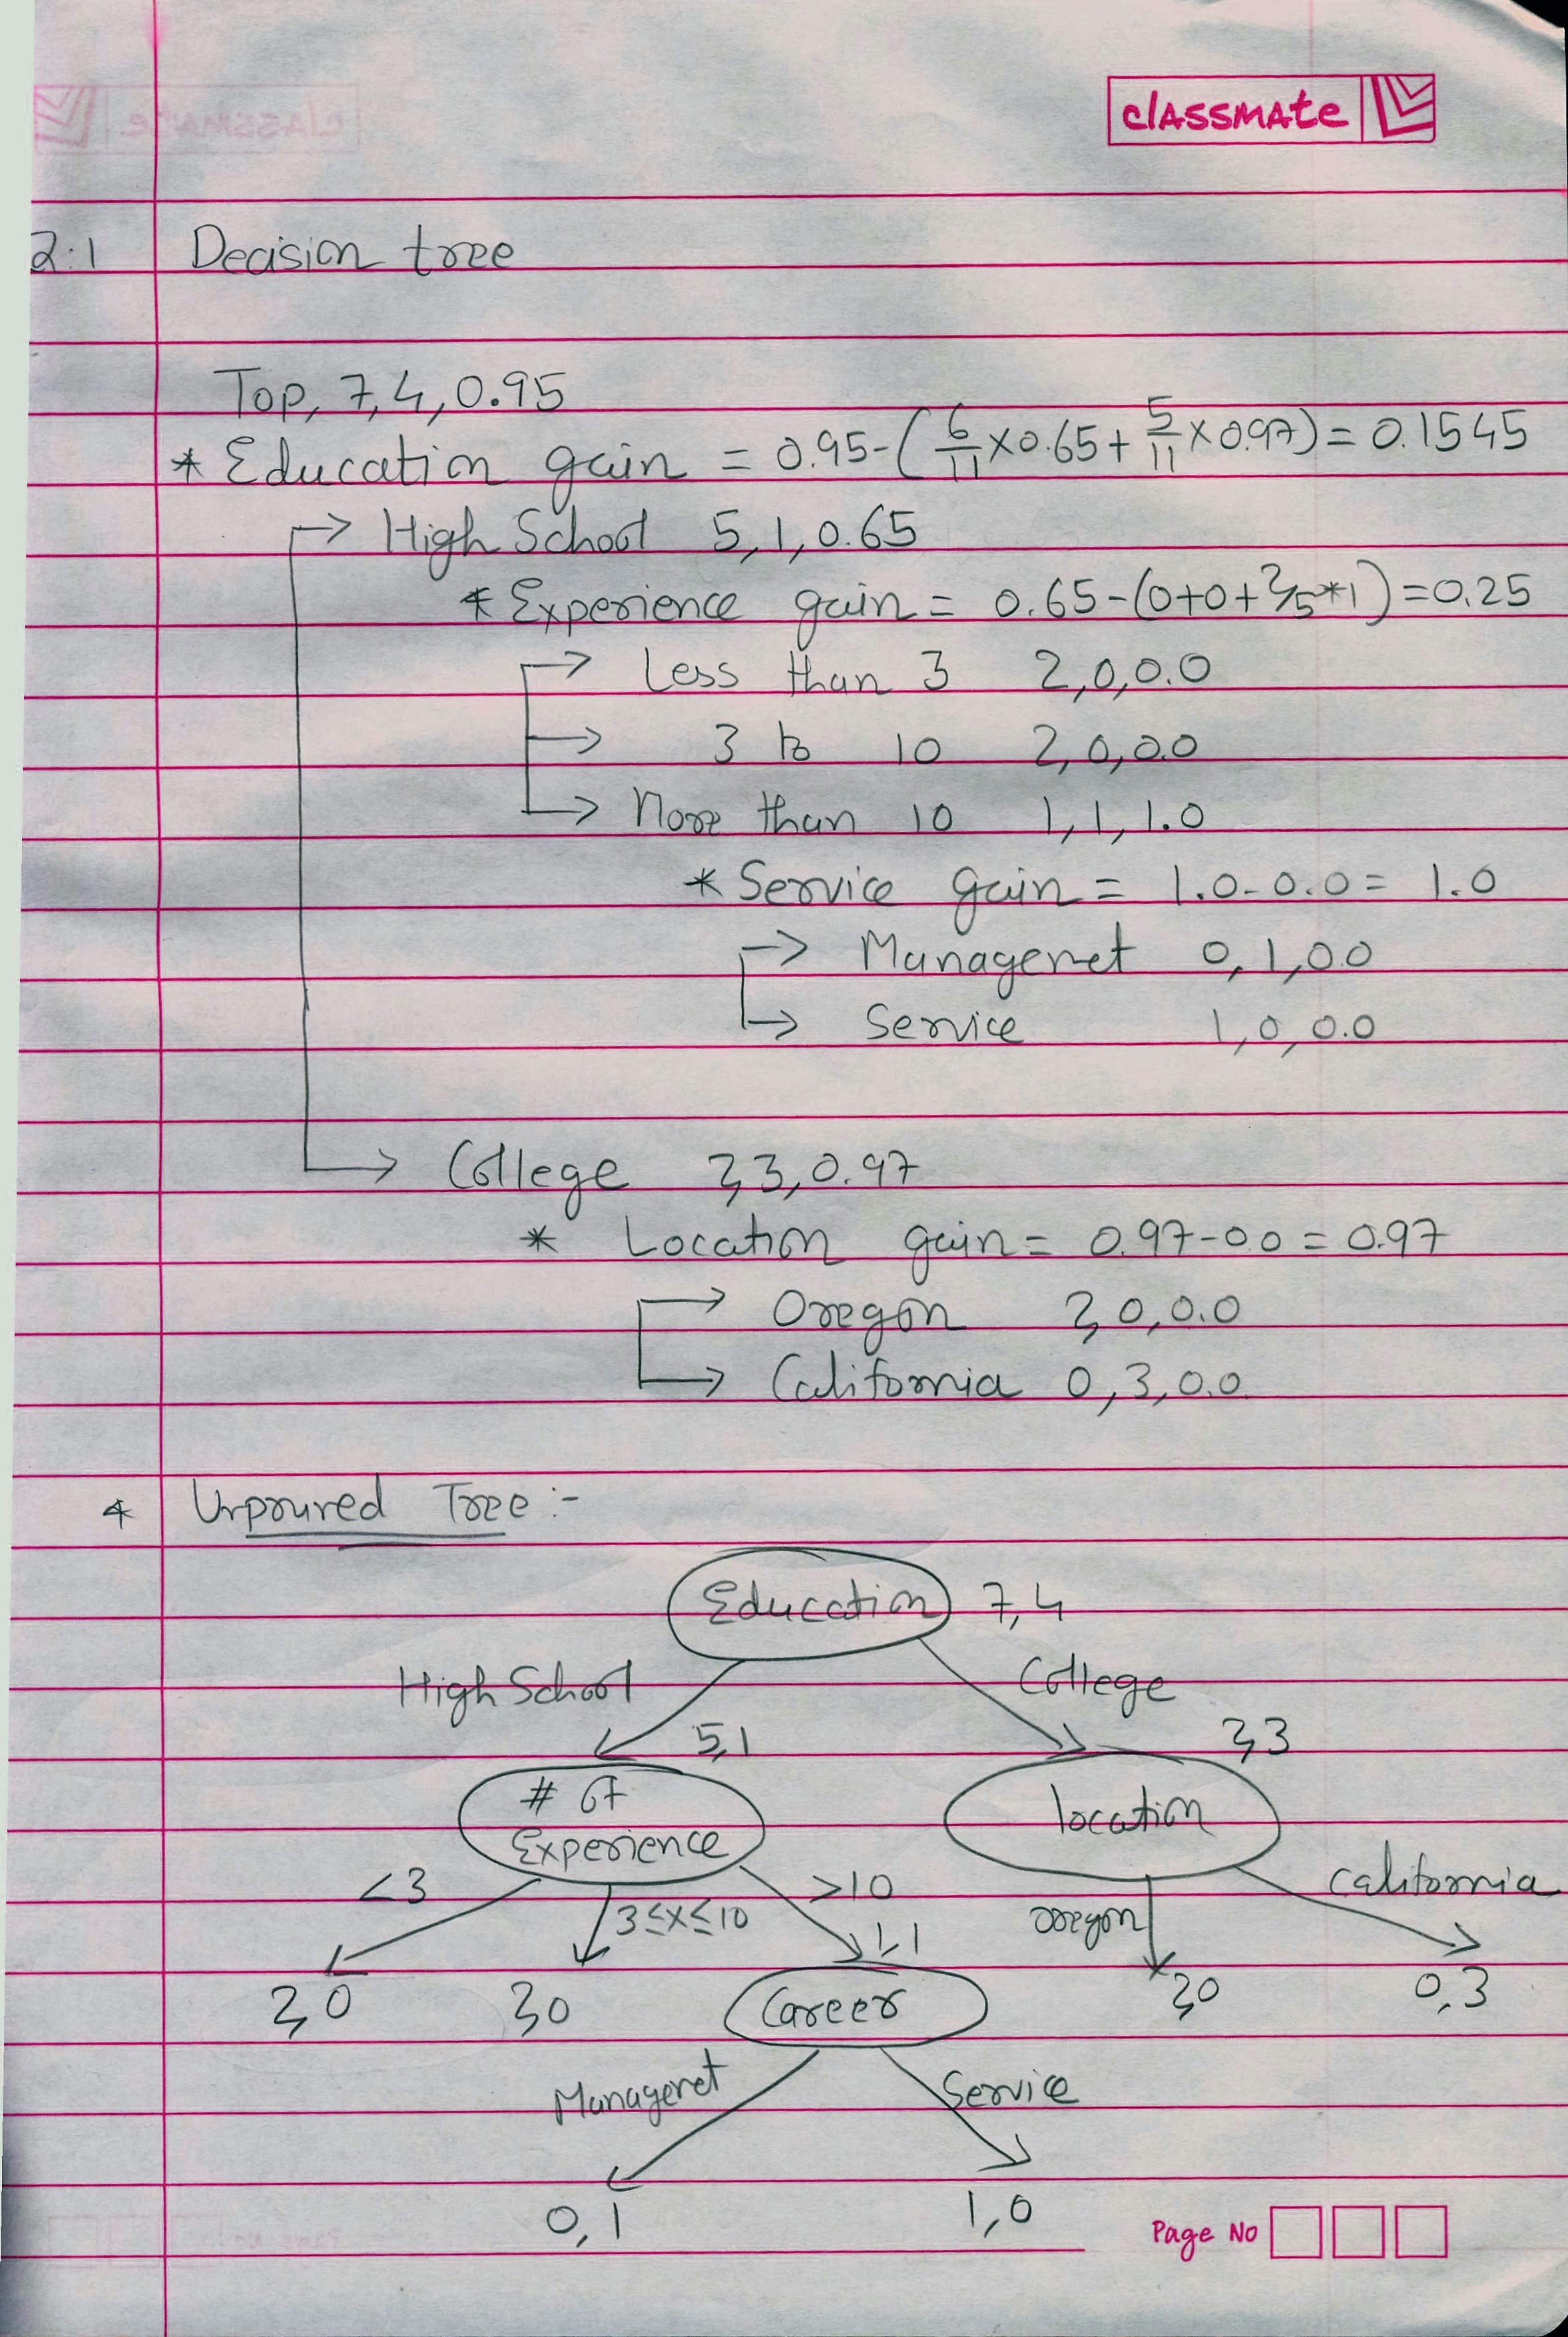 classmate
2.1 Decision tree
Top, 7,4,0.95
* Education gain = 0.95-(6/11×0.65+5/11×0.97)=0.1545
→ High School 5,1,0.65
* Experience gain = 0.65-(0+0+2/5*1)=0.25
→ Less than 3 2,0,0.0
→ 3 to 10 2,0,0.0
→ More than 10 1,1,1.0
* Service gain = 1.0-0.0= 1.0
→ Managenet 0,1,0.0
→ Service 1,0,0.0
→ College 2,3,0.97
* Location gain= 0.97-0.0 = 0.97
→ Oregon 2,0,0.0
→ California 0,3,0.0
* Unpruned Tree :-
Education 7,4
High School College
5,1 2,3
# of
Experience
location
<3 >10 California
3≤x≤10 oregon
1,1
2,0 2,0 Career 2,0 0,3
Managenet Service
0,1 1,0
Page No